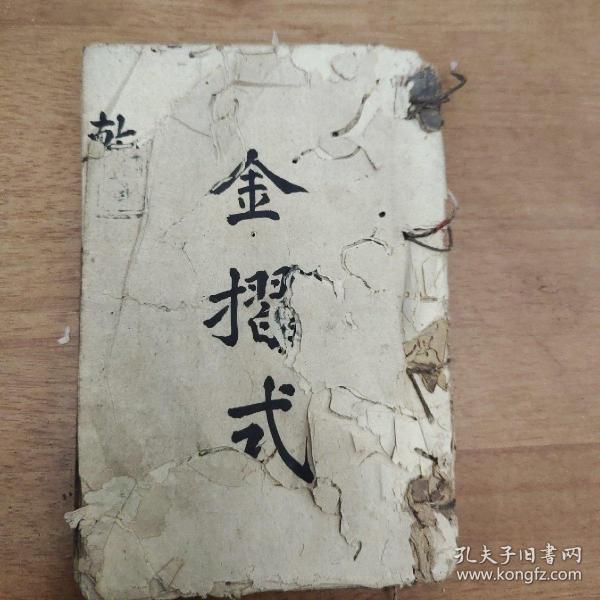 金摺式
孔夫子旧书网
www.kongfz.com